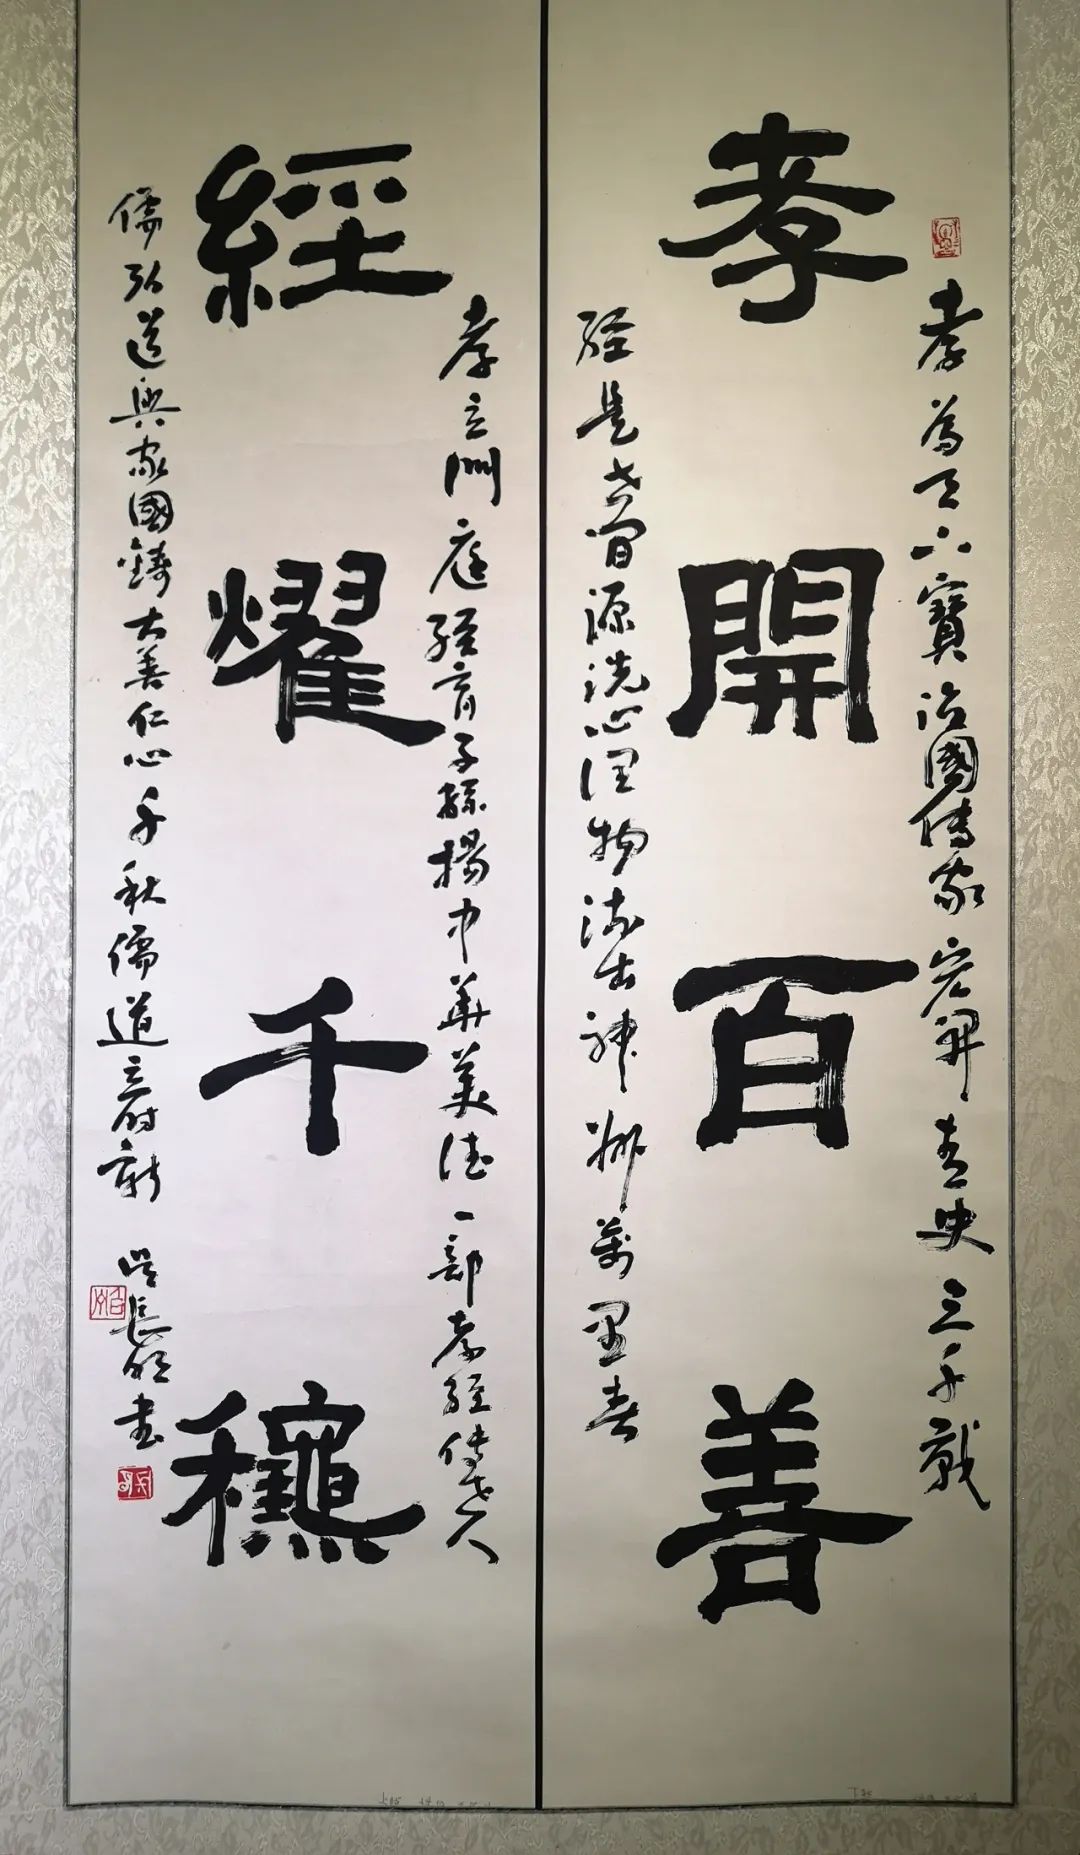 孝為天下寶治國傳家宏開青史三千載
孝開百善
經是世間源洗心潤物流出神州萬里春
孝立門庭經育子孫揚中華美德一部孝經傳世人
經耀千龝
儒弘道興家國鑄大善仁心千秋儒道立時新 吳長明書